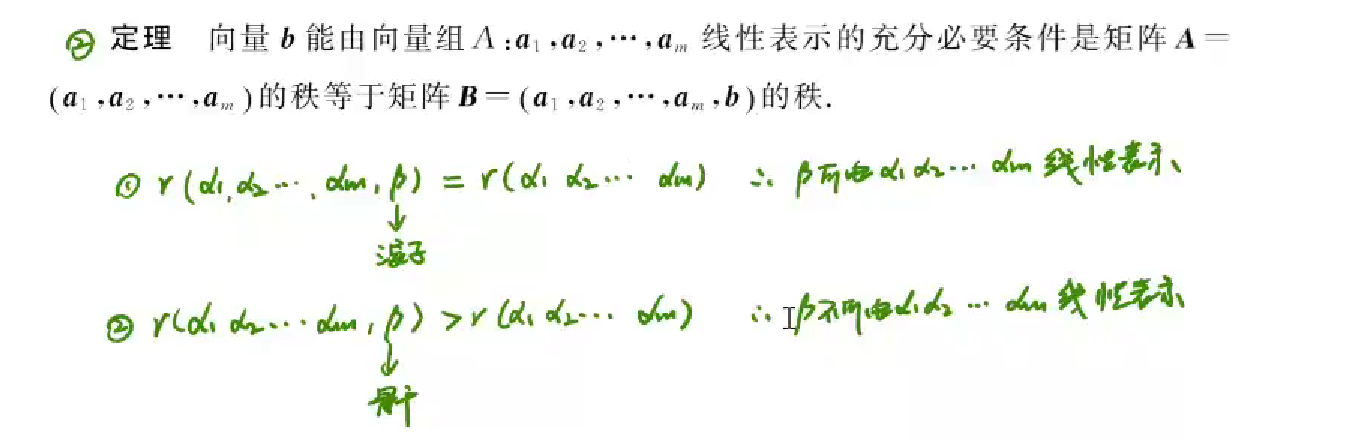 ② 定理 向量 b 能由向量组 A:a₁,a₂,⋯,aₘ 线性表示的充分必要条件是矩阵 A=
(a₁,a₂,⋯,aₘ)的秩等于矩阵 B=(a₁,a₂,⋯,aₘ,b)的秩.
① r(α₁,α₂⋯,αm,β) = r(α₁ α₂⋯ αm) ∴ β可由α₁α₂⋯ αm 线性表示
↓
混子
② r(α₁ α₂⋯αm,β) > r(α₁ α₂⋯ αm) ∴ β不可由α₁α₂⋯ αm 线性表示
↓
骨干